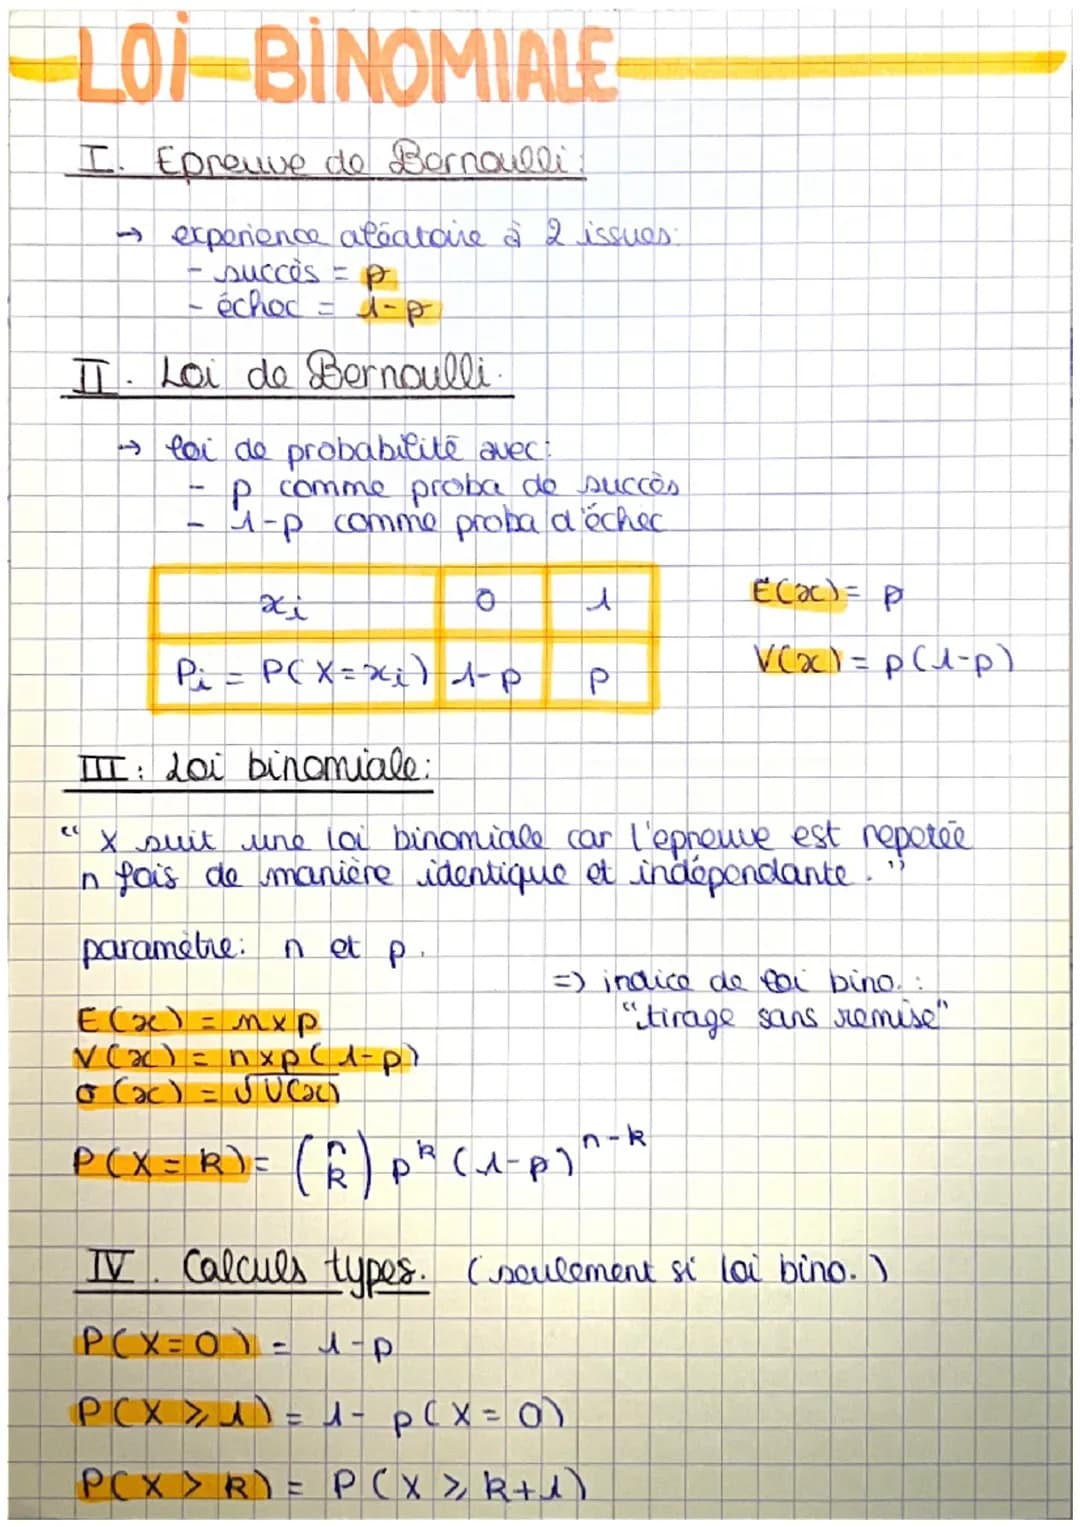 LOI BINOMIALE
I. Epreuve de Bernoulli:
→ experience aléatoire à 2 issues:
- succès = p
- échec = 1-p
II. Loi de Bernoulli.
→ loi de probabilité avec:
- p comme proba de succès
- 1-p comme proba d'échec
xi 0 1
Pi = P(X=xi) 1-p p
E(x) = p
V(x) = p(1-p)
III: Loi binomiale:
“X suit une loi binomiale car l'epreuve est repetée
n fois de manière identique et indépendante.”
paramètre: n et p.
=> indice de loi bino.:
“tirage sans remise”
E(x) = n×p
V(x) = n×p(1-p)
σ(x) = √V(x)
P(X=k) = (n k) p^k (1-p)^n-k
IV. Calculs types. (seulement si loi bino.)
P(X=0) = 1-p
P(X⩾1) = 1- p(X=0)
P(X>k) = P(X⩾k+1)